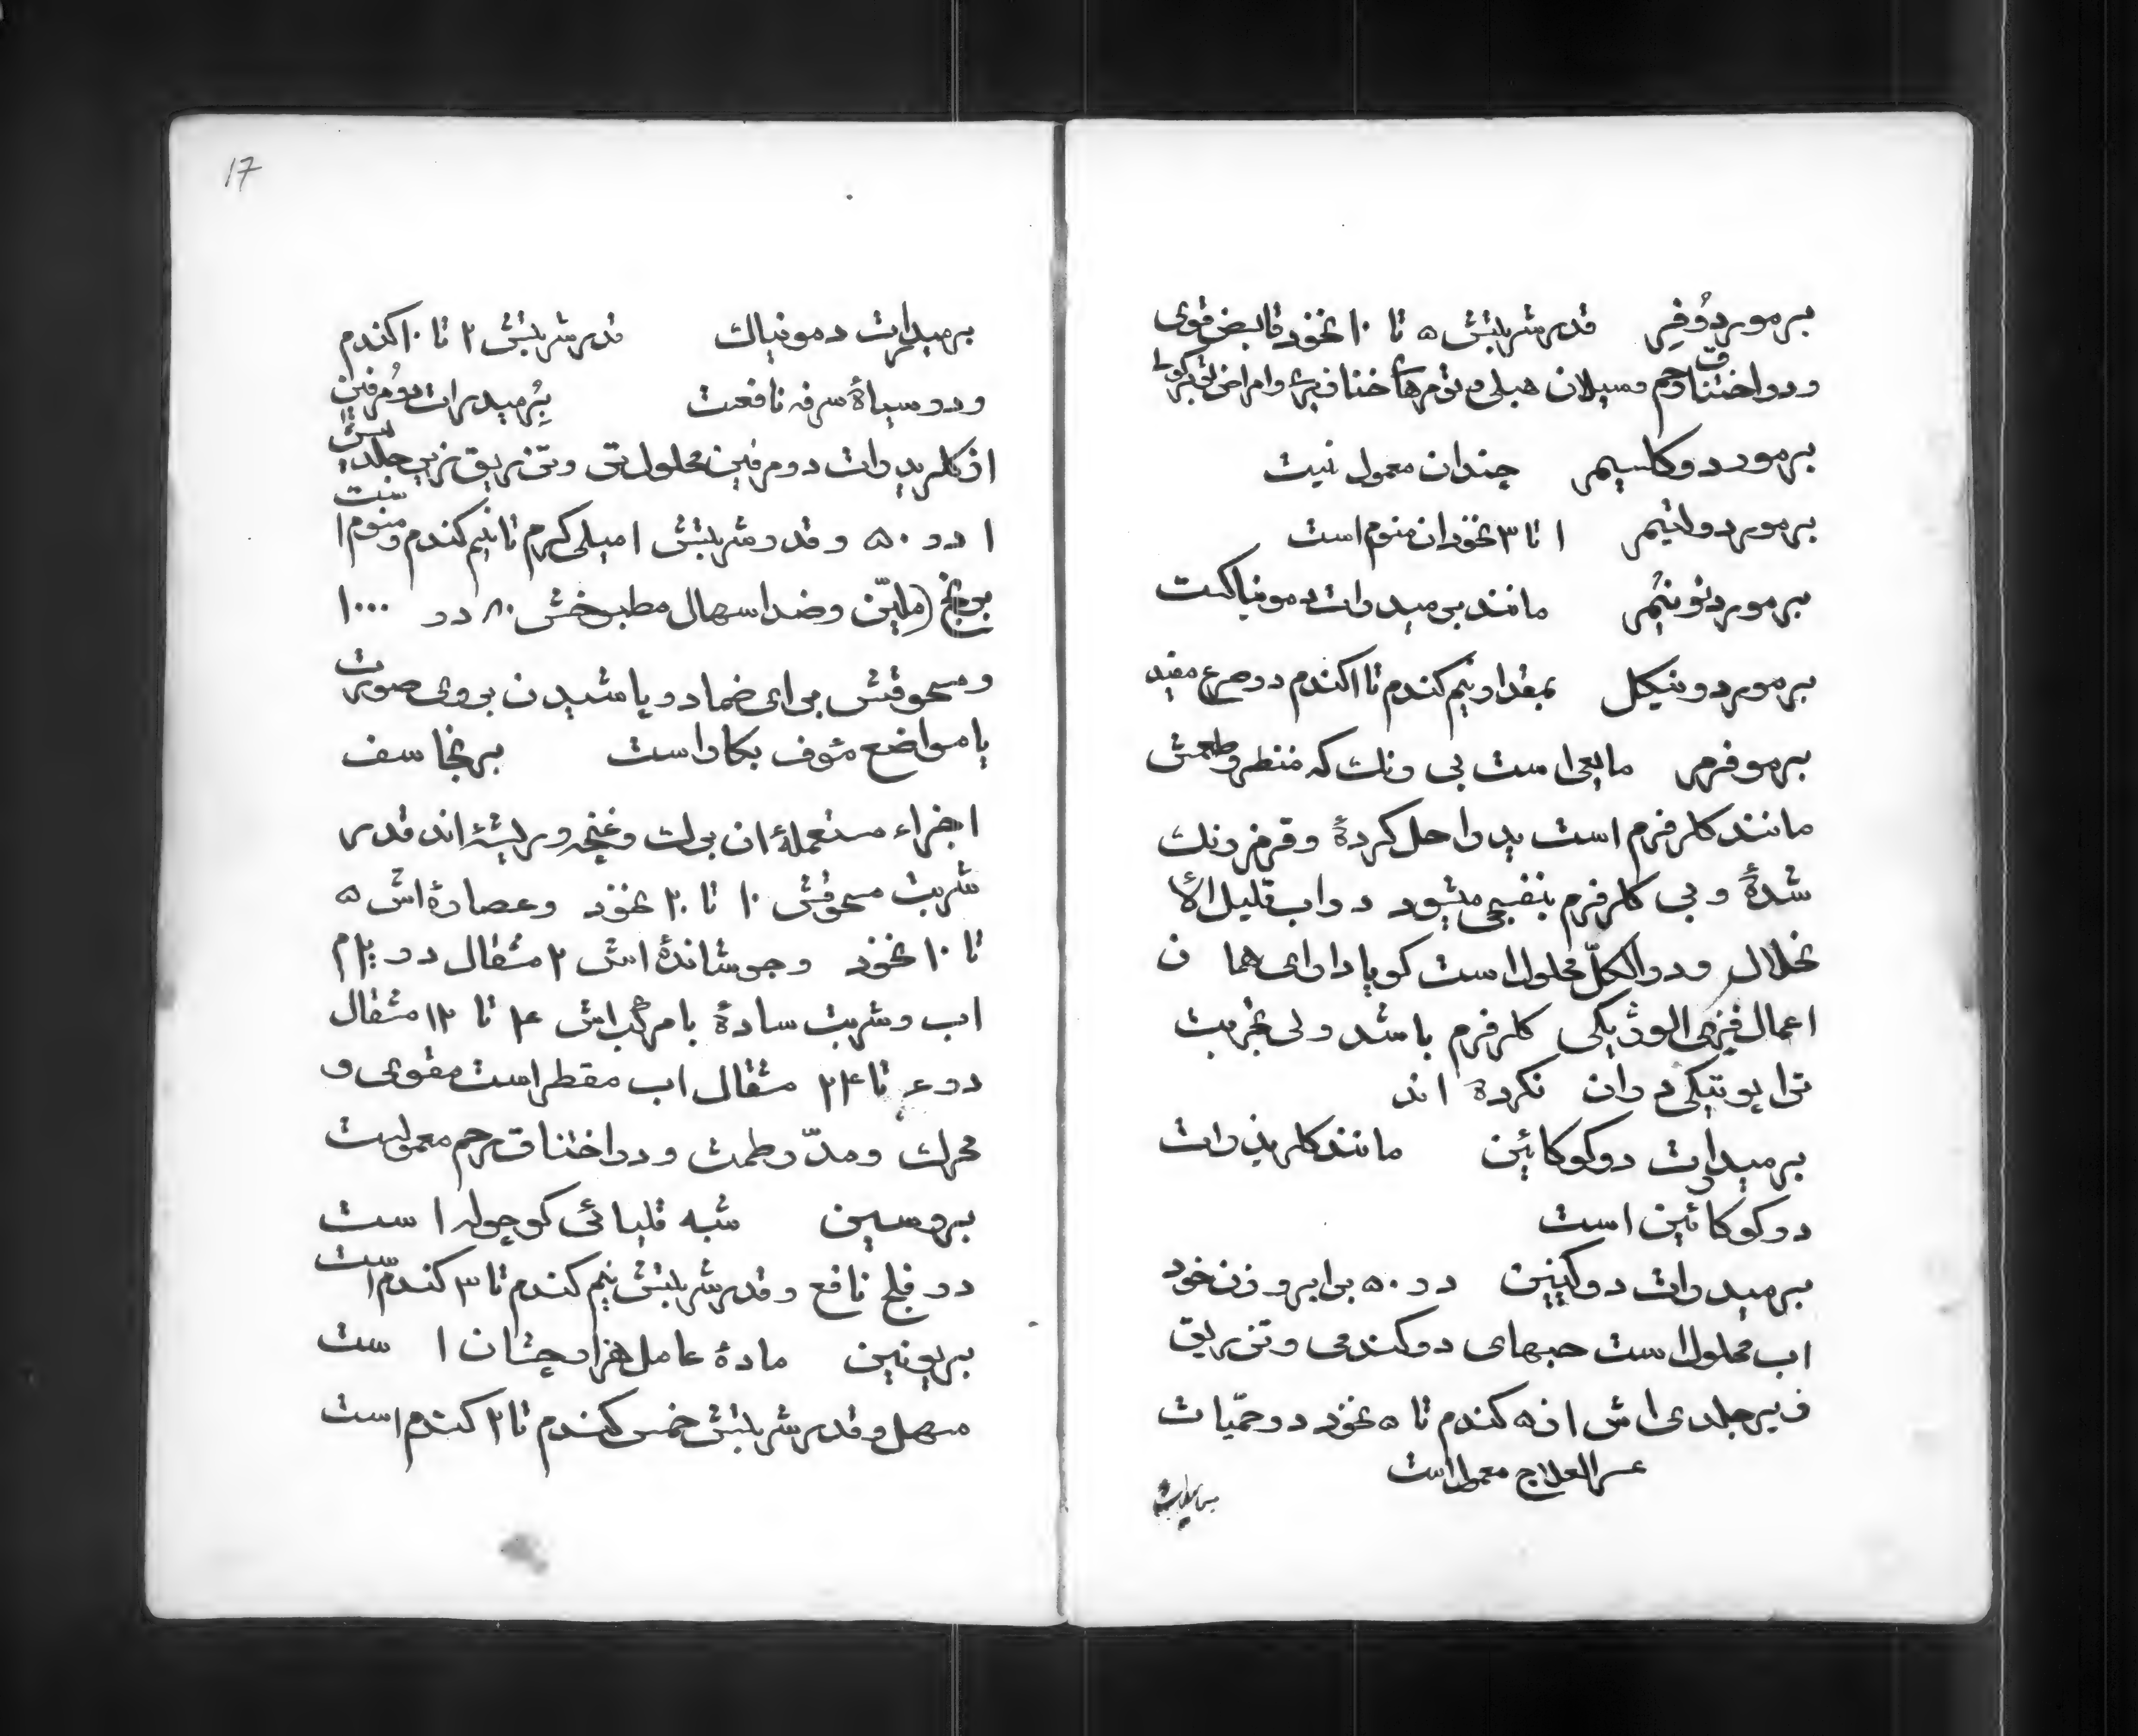 برمور دُوفِر قدر شربتش ۵ تا ۱۰ نخود قابض قوی
و در اختناق رحم و سیلان مهبلی و تورمهای خنازیری و امراض
برمور دو کلسیم چندان معمول نیست
برمور دو لیتیم ۱ تا ۳ نخود ان منوم است
برمور دو نیُم مانند برمیدرات دمونیاکست
برمور دو نیکل بمقدار نیم کندم تا ۱ کندم در صرع مفید
برموفرم مایعی است بی رنک که منظر و طعمش
مانند کلرفرم است ید را حل کرده و قرمز رنک
شده و بی کلرفرم بنفسجی میشود در اب قلیل الا
نحلال و در الکل محلول است کویا دارای هما ن
اعمال فیزی الوژیکی کلرفرم باشد ولی تجربت
ترا پوتیکی در ان نکرده اند
برمیدرات دو کوکائین مانند کلریدرات
دو کوکائین است
برمیدرات دو کینین در ۵۰ برابر وزن خود
اب محلول است حبهای دو کندمی و تزریق
زیر جلدی اش از ۵ کندم تا ۵ نخود در حمّیات
عسر العلاج معمول است
17
برمیدرات دمونیاك قدر شربتش ۲ تا ۱۰ کندم
و در سیاه سرفه نافعست بِرُمیدرات دو مُرفین
از کلریدرات دو مرفین محلول تر و تزریق زیر جلدیش
۱ در ۵۰ و قدر شربتش ۱ میلی کرم تا نیم کندم و منوم است
برنج (ملیّن و ضد اسهال مطبوخش ۸۰ در ۱۰۰۰
و مسحوقش برای ضماد و پاشیدن بروی صورت
یا مواضع مئوف بکار است برنجاسف
اجزاء مستعمله ان برك و غنچه و ریشه اند قدر
شربت مسحوقش ۱۰ تا ۲۰ نخود و عصاره اش ۵
تا ۱۰ نخود و جوشانده اش ۲ مثقال در
اب و شربت ساده یا مرکب اش ۴ تا ۱۲ مثقال
در تا ۲۴ مثقال اب مقطر است مقوی و
محرك و مدّر طمث و در اختناق رحم معمولست
بروسین شبه قلیائی کوچوله ا ست
در فلج نافع و قدر شربتش نیم کندم تا ۳ کندم است
بریونین ماده عامل هزار چشان ا ست
مسهل و قدر شربتش خمس کندم تا ۲ کندم است